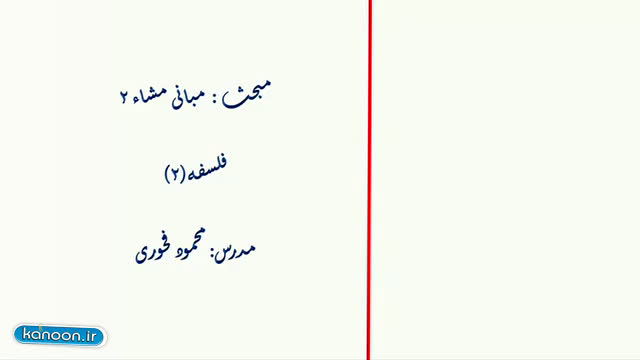 مبحث : مبانی مشاء ۲
فلسفه (۲)
مدرس: محمود فخوری
kanoon.ir